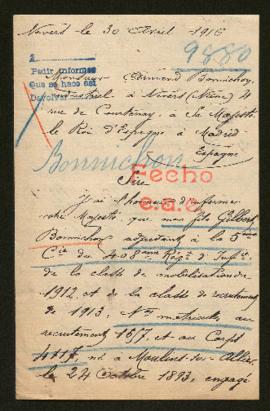 Nevers le 30 Avril 1916
9880
1
Pedir informes
Que se hace así
Devolver
Monsieur Armand Bonnichon,
à Nevers (Nièvre) 4
rue de Courtenay, à Sa Majesté
le Roi d'Espagne à Madrid
Espagne
Bonnichon
Fecho
Sire
J'ai l'honneur d'informer
votre Majesté que mon fils Gilbert
Bonnichon adjudant à la 5ème
Cie du 408ème Régt d'Infie
de la classe de mobilisation de
1912 et de la classe de recrutement
de 1913, Nos matricule au
recrutement 1577 et au Corps
4117, né à Moulins-sur-Allier
le 24 Octobre 1893, engagé